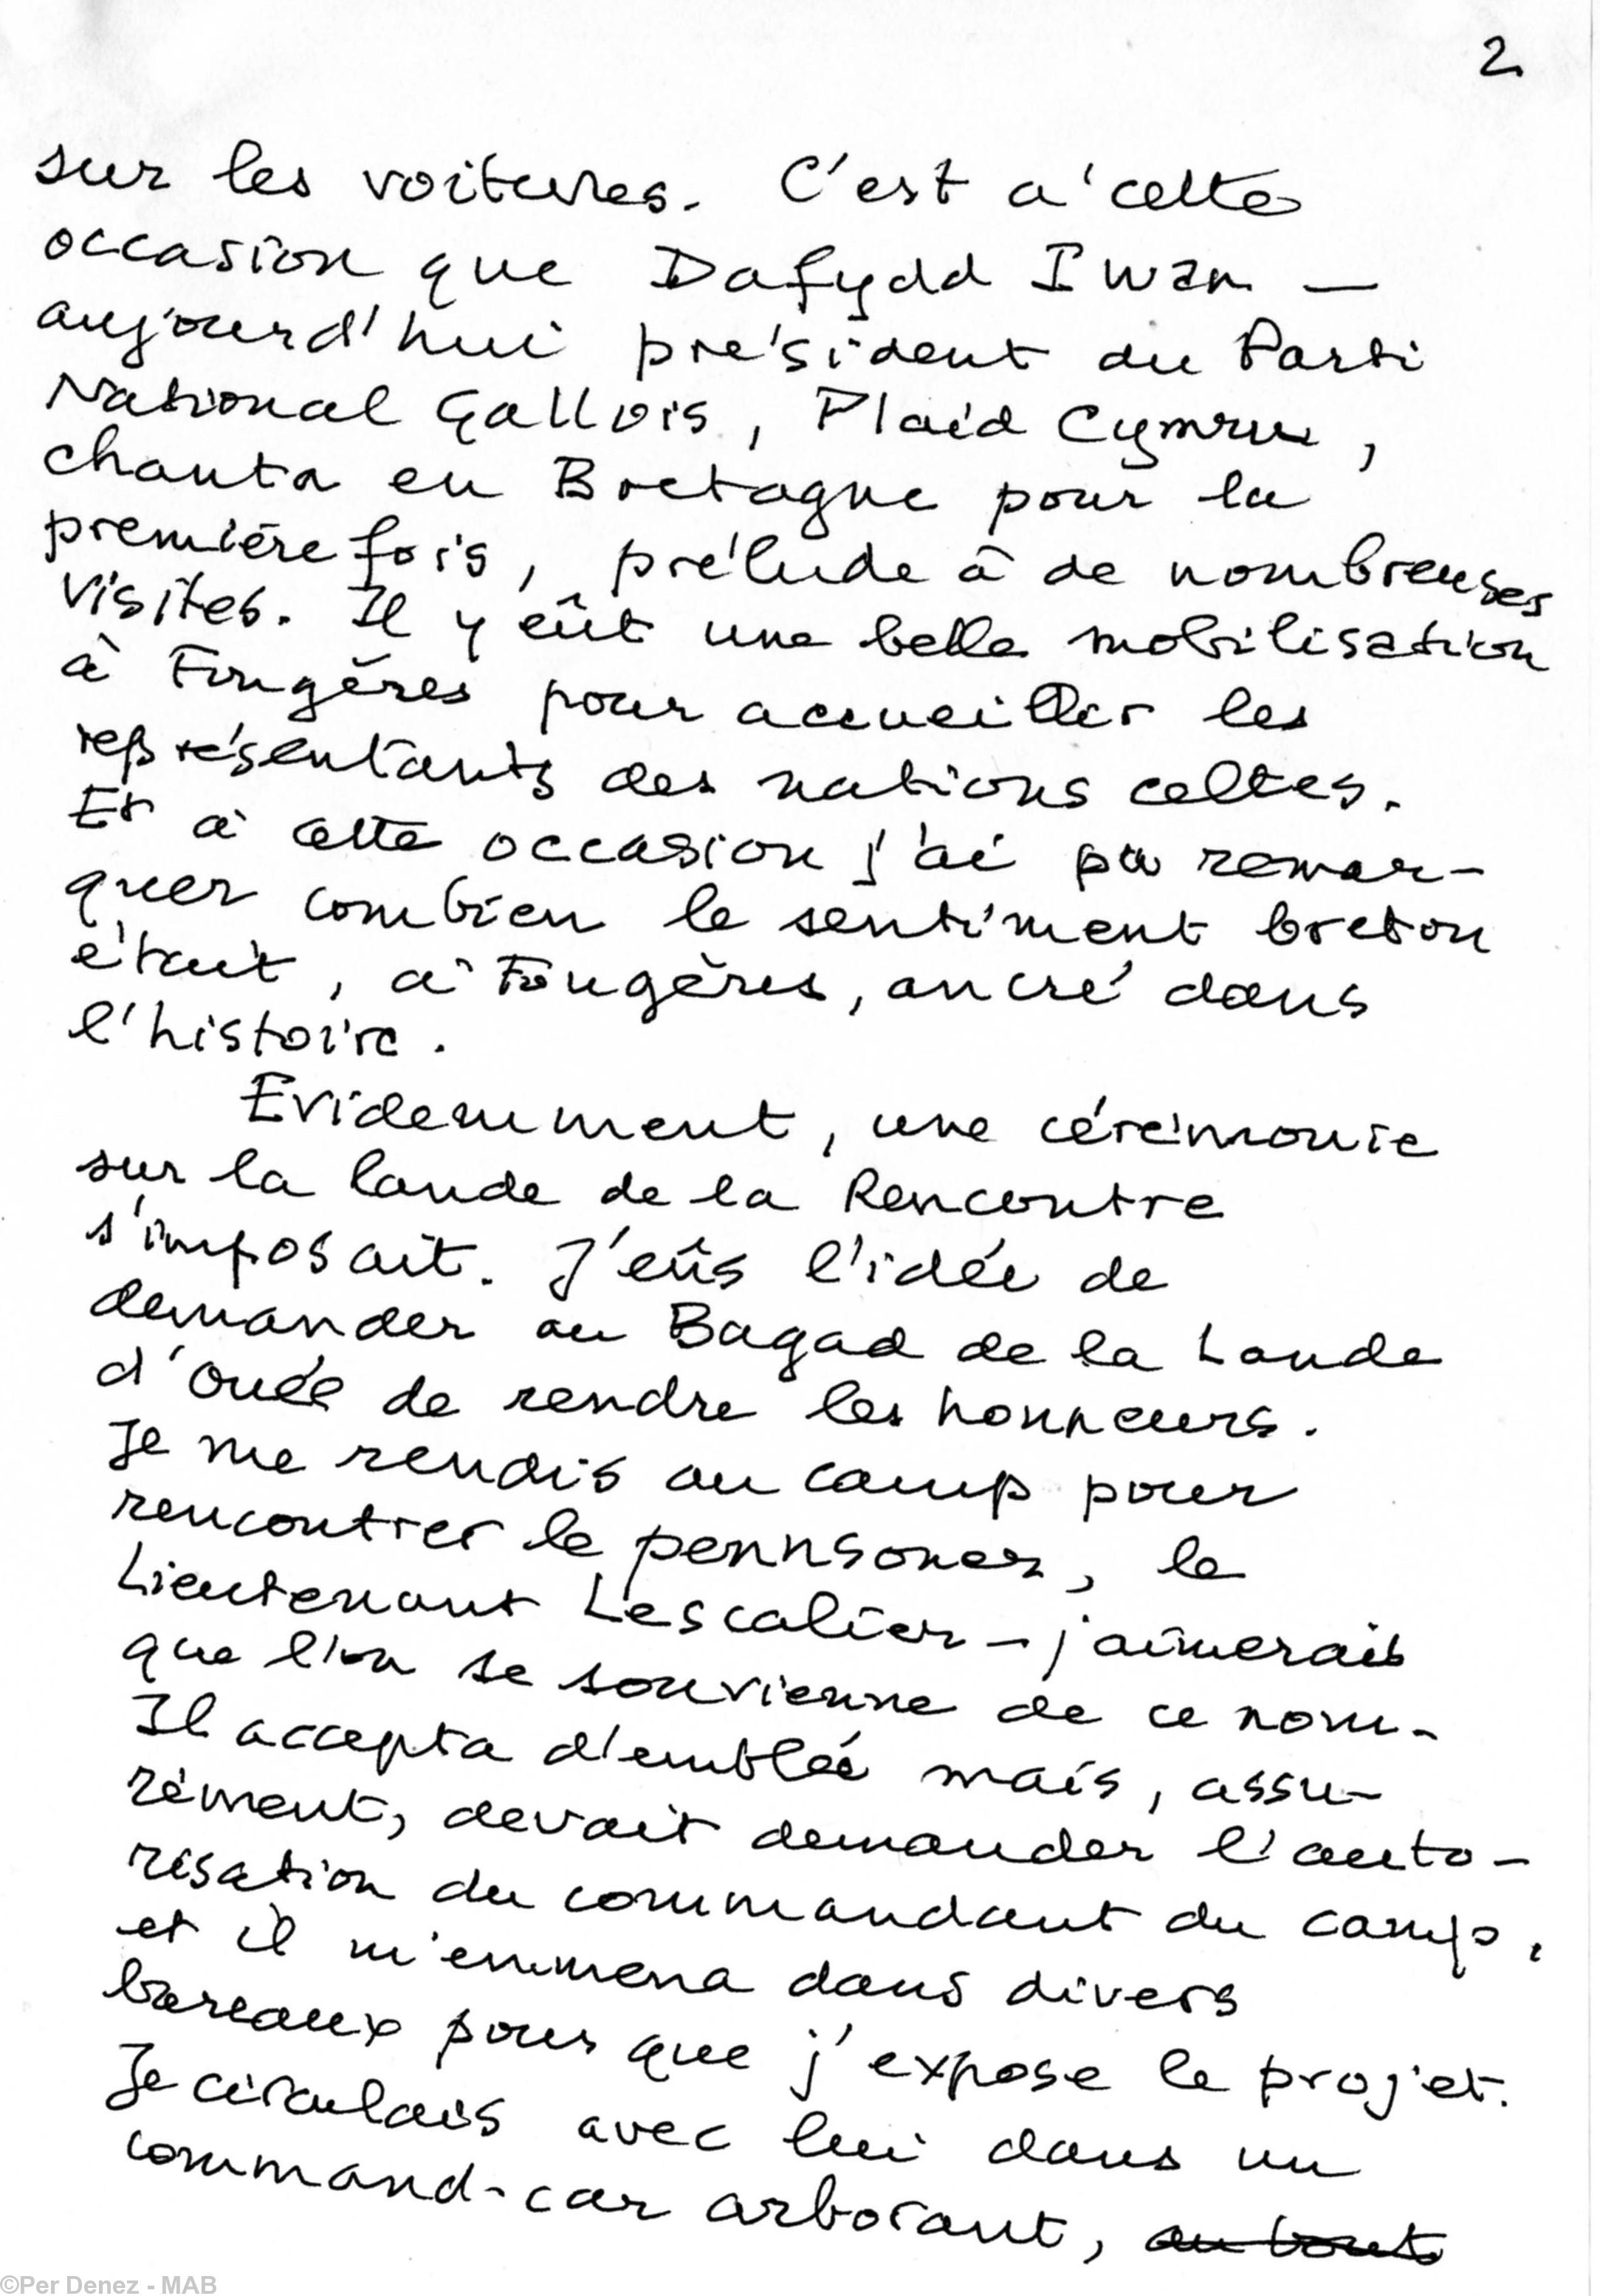 2
sur les voitures. C'est a' cette
occasion que Dafydd Iwan —
aujourd'hui président du Parti
National Gallois, Plaid Cymru,
chanta en Bretagne pour la
première fois, prélude à de nombreuses
visites. Il y eût une belle mobilisation
à Fougères pour accueillir les
représentants des nations celtes.
Et à cette occasion j'ai pu remar-
quer combien le sentiment breton
était, à Fougères, ancré dans
l'histoire.
Evidemment, une cérémonie
sur la lande de la Rencontre
s'imposait. J'eûs l'idée de
demander au Bagad de la Lande
d'Ouée de rendre les honneurs.
Je me rendis au camp pour
rencontrer le pennsoner, le
Lieutenant Lescalier - j'aimerais
que l'on se souvienne de ce nom -
Il accepta d'emblée mais, assu-
rément, devait demander l'auto-
risation du commandant du camp,
et il m'emmena dans divers
bureaux pour que j'expose le projet.
Je circulais avec lui dans un
command-car arborant, au bout
©Per Denez - MAB